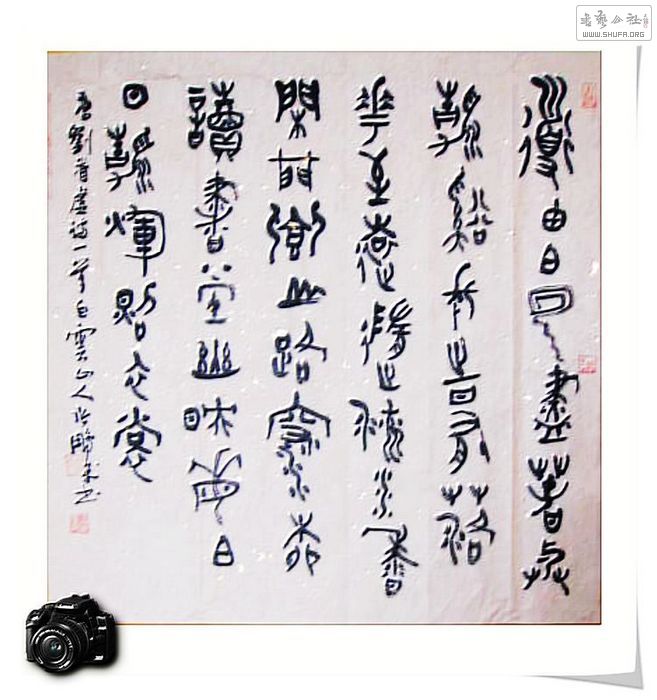 道由白雲盡春與
青谿長時有落
花至遠隨流水香
閑門向山路深柳
讀書堂幽映每白
日清煇照衣裳
唐劉眘虛詩一首白雲山人
書藝公社
WWW.SHUFA.ORG